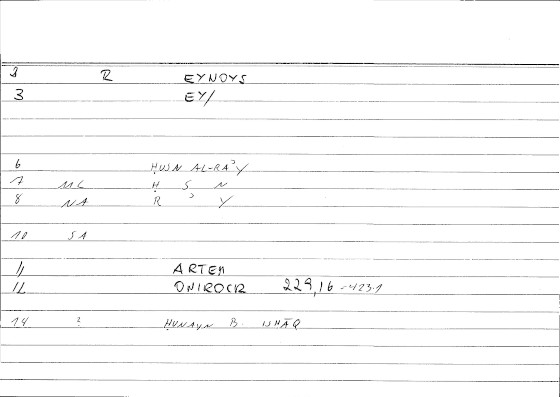 3 R EYNOYS
3 EY/
6 ḤUSN AL-RAʾY
7 MC Ḥ S N
8 NA R ʾ Y
10 SA
11 ARTEM
12 ONIROCR 229,16 -423.1
14 ? ḤUNAYN B. ISḤĀQ